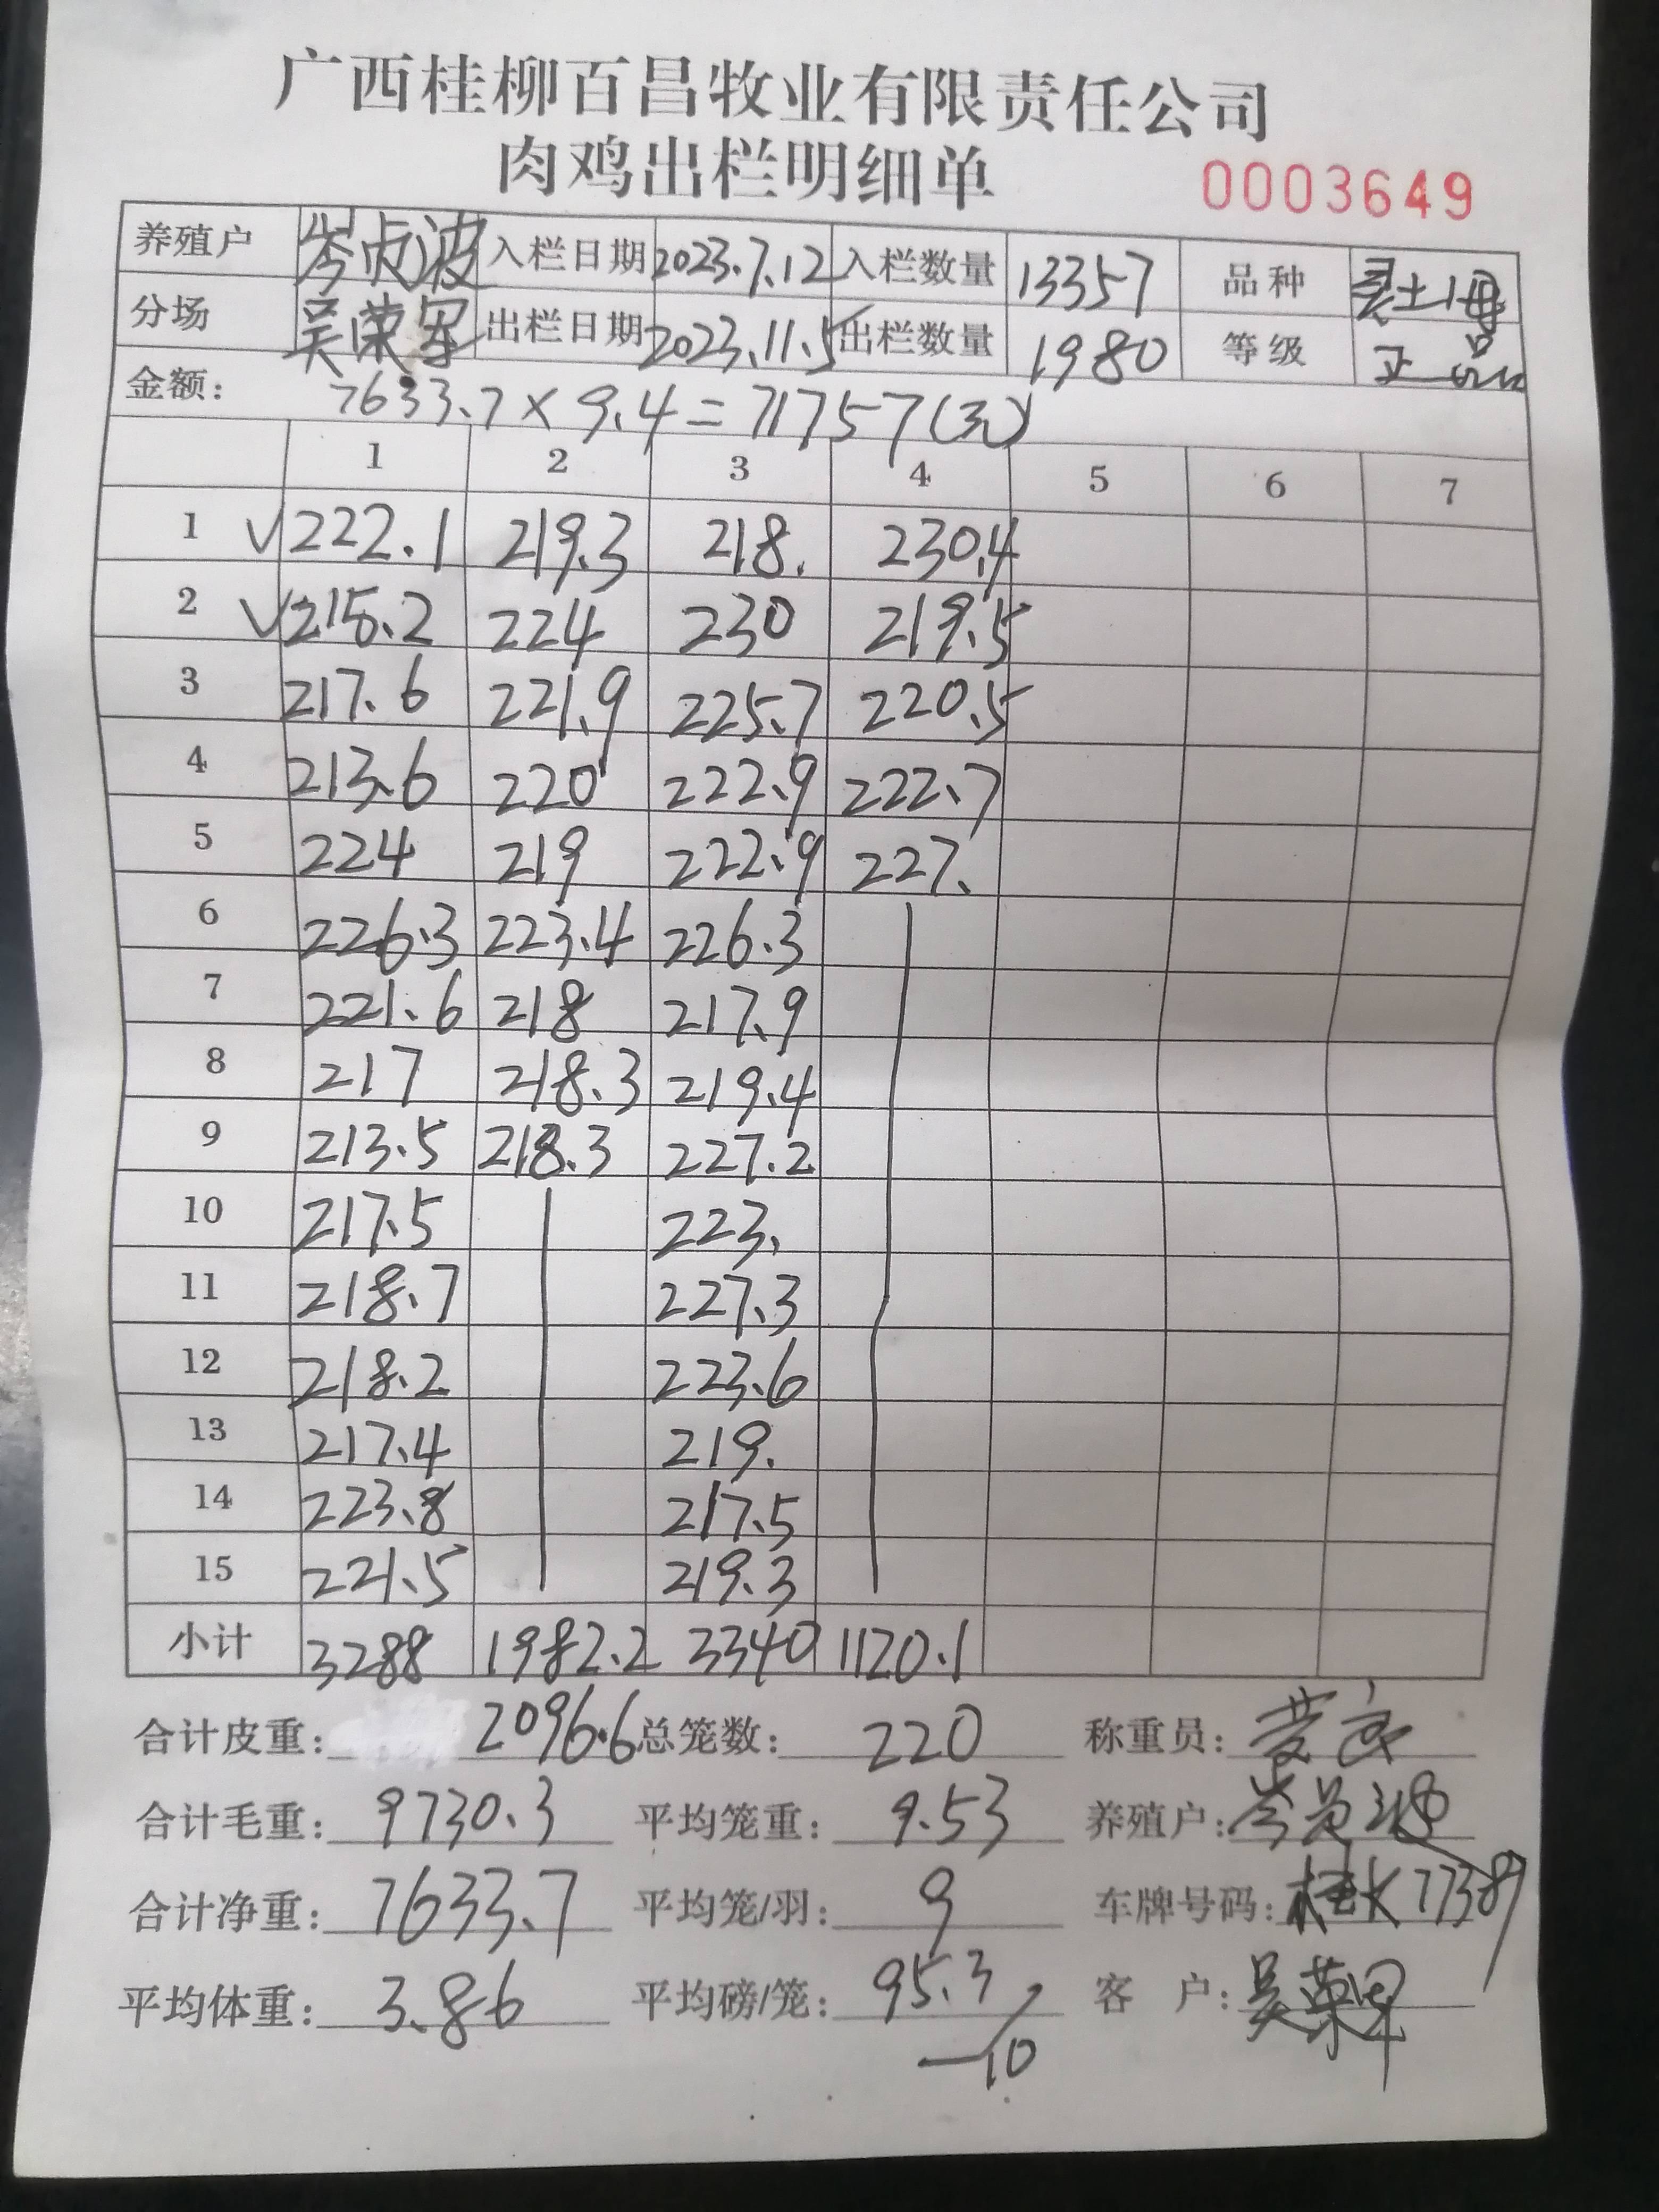 广西桂柳百昌牧业有限责任公司
肉鸡出栏明细单 0003649
养殖户 岑贞波 入栏日期 2023.7.12 入栏数量 13357 品种 灵土母
分场 吴荣军 出栏日期 2023.11.5 出栏数量 1980 等级 正品
金额: 7633.7×9.4=71757(元)
1 2 3 4 5 6 7
1 √222.1 219.3 218. 230.4
2 √215.2 224 230 219.5
3 217.6 221.9 225.7 220.5
4 213.6 220 222.9 222.7
5 224 219 222.9 227.
6 226.3 223.4 226.3
7 221.6 218 217.9
8 217 218.3 219.4
9 213.5 218.3 227.2
10 217.5 223.
11 218.7 227.3
12 218.2 223.6
13 217.4 219.
14 223.8 217.5
15 221.5 219.3
小计 3288 1982.2 3340 1120.1
合计皮重: 2096.6 总笼数: 220 称重员:
合计毛重: 9730.3 平均笼重: 9.53 养殖户:
合计净重: 7633.7 平均笼/羽: 9 车牌号码: 77389
平均体重: 3.86 平均磅/笼: 95.3 客 户: 吴荣军
—10